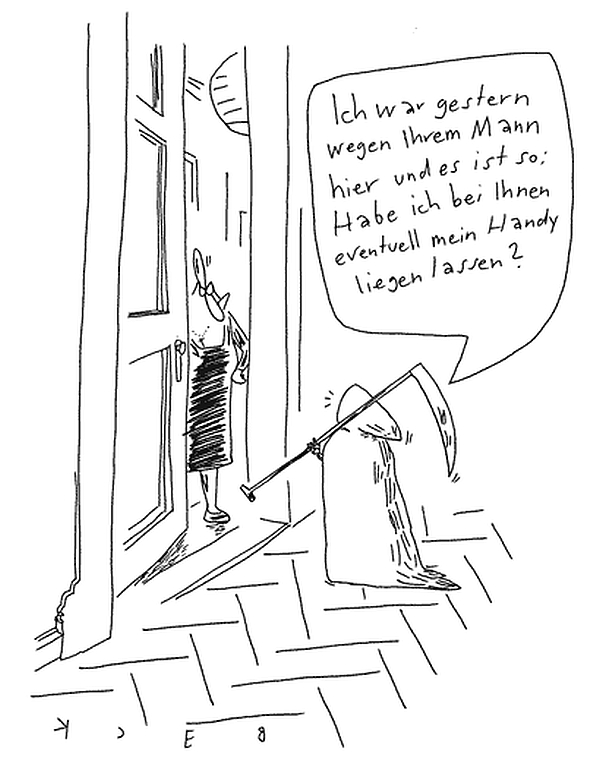 Ich war gestern
wegen Ihrem Mann
hier und es ist so:
Habe ich bei Ihnen
eventuell mein Handy
liegen lassen?
BECK